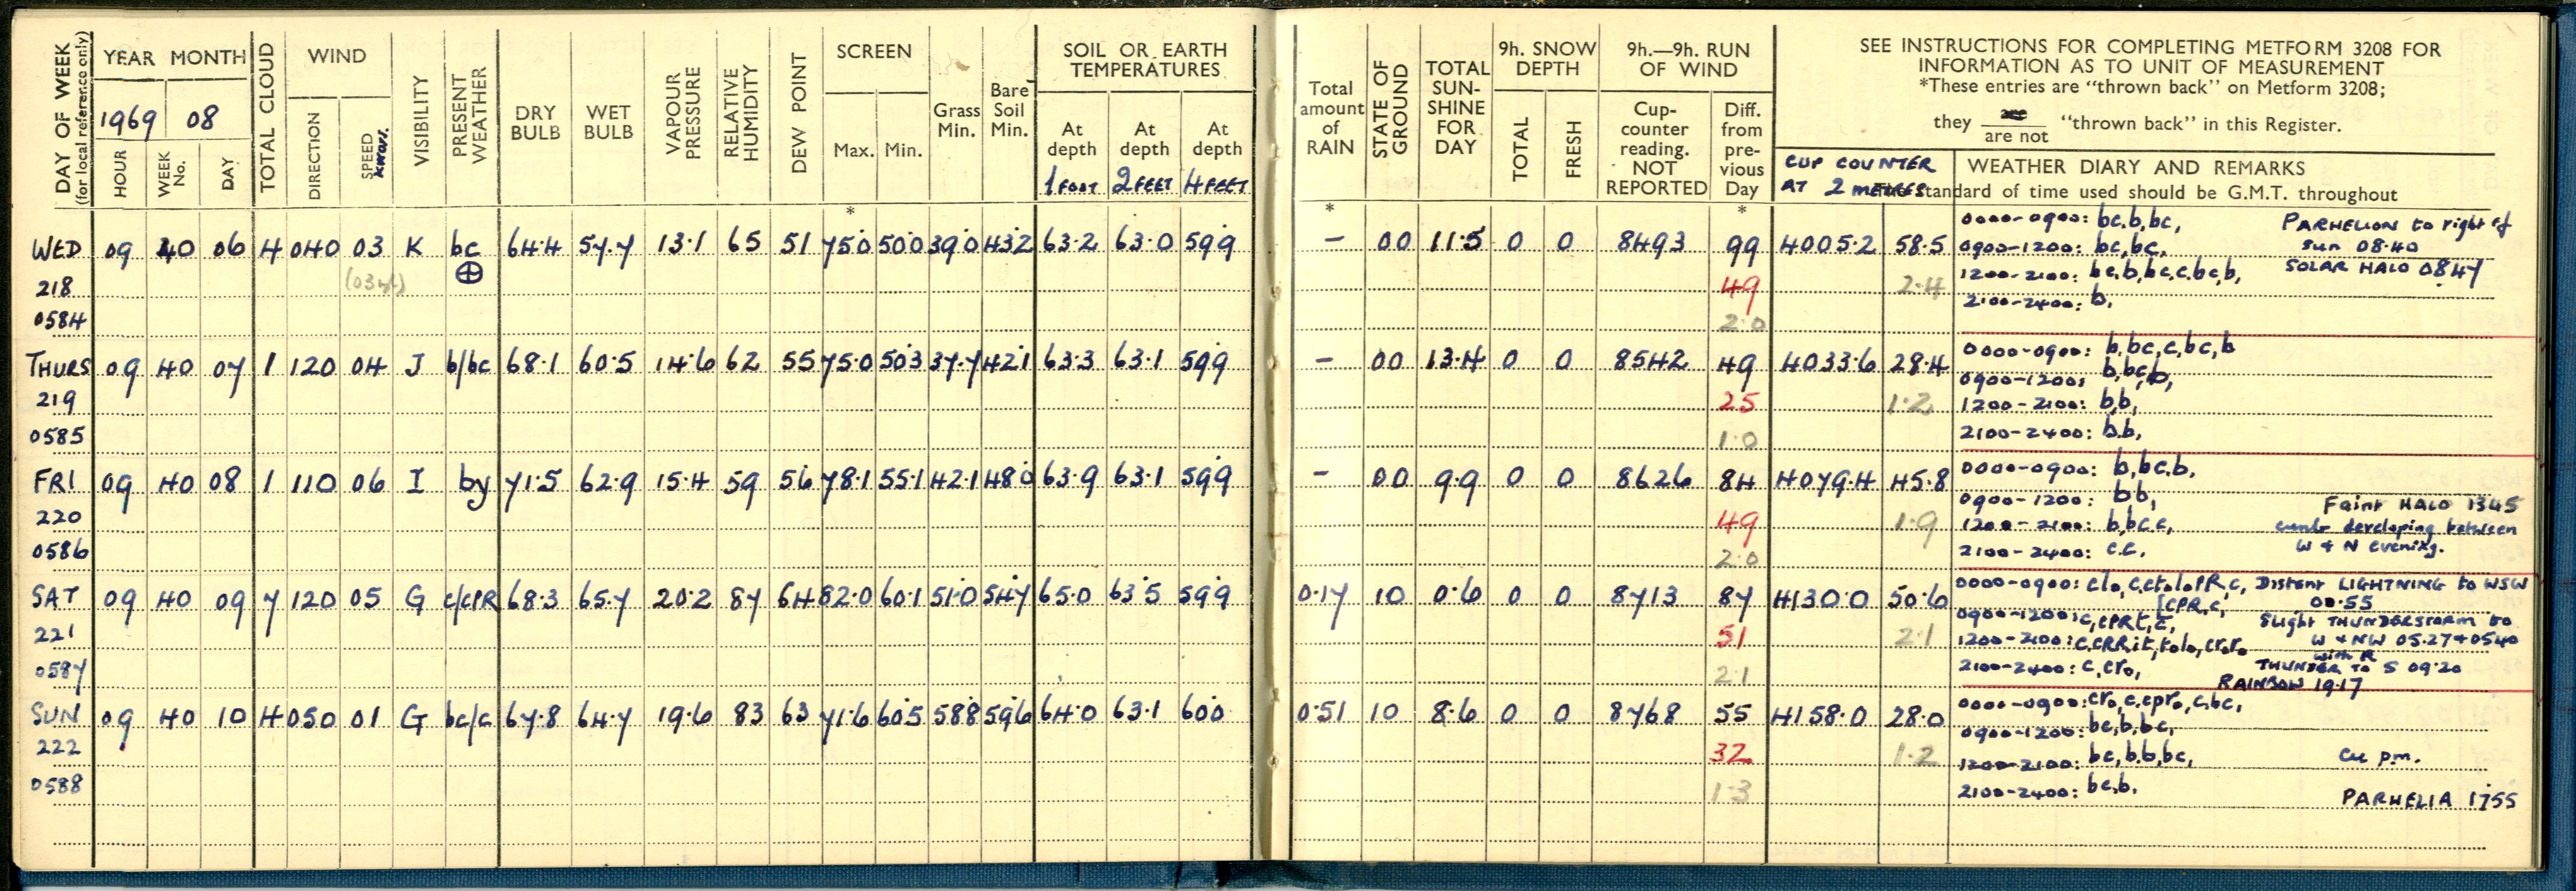 DAY OF WEEK (for local reference only)
YEAR MONTH
1969 08
HOUR WEEK No. DAY
TOTAL CLOUD
WIND
DIRECTION SPEED KNOTS.
VISIBILITY
PRESENT WEATHER
DRY BULB
WET BULB
VAPOUR PRESSURE
RELATIVE HUMIDITY
DEW POINT
SCREEN
Max. Min.
Grass Min.
Bare Soil Min.
SOIL OR EARTH TEMPERATURES
At depth 1 FOOT At depth 2 FEET At depth 4 FEET
Total amount of RAIN
STATE OF GROUND
TOTAL SUN-SHINE FOR DAY
9h. SNOW DEPTH
TOTAL FRESH
9h.—9h. RUN OF WIND
Cup-counter reading. NOT REPORTED
Diff. from pre-vious Day
SEE INSTRUCTIONS FOR COMPLETING METFORM 3208 FOR
INFORMATION AS TO UNIT OF MEASUREMENT
*These entries are "thrown back" on Metform 3208;
they are / are not "thrown back" in this Register.
CUP COUNTER
AT 2 METRES
WEATHER DIARY AND REMARKS
standard of time used should be G.M.T. throughout
* * *
WED 09 40 06 4 040 03 K bc 64.4 57.7 13.1 65 51 75.0 50.0 39.0 43.2 63.2 63.0 59.9 – 00 11.5 0 0 8493 99 4005.2 58.5
0000-0900: bc,b,bc, PARHELION to right of
0900-1200: bc,bc, Sun 08.40
218 ⊕ 49 2.4 1200-2100: bc,b,bc,c,bc,b, SOLAR HALO 0847
0584 2.0 2100-2400: b,
THURS 09 40 07 1 120 04 J b/bc 68.1 60.5 14.6 62 55 75.0 50.3 37.7 42.1 63.3 63.1 59.9 – 00 13.4 0 0 8542 49 4033.6 28.4
0000-0900: b,bc,c,bc,b
0900-1200: b,bc,b,
219 25 1.2 1200-2100: b,b,
0585 1.0 2100-2400: b,b,
FRI 09 40 08 1 110 06 I by 71.5 62.9 15.4 59 56 78.1 55.1 42.1 48.0 63.9 63.1 59.9 – 00 9.9 0 0 8626 84 4079.4 45.8
0000-0900: b,bc,b,
0900-1200: b,b, Faint HALO 1345
220 49 1.9 1200-2100: b,bc,c, developing between
0586 2.0 2100-2400: c,c, W & N evening.
SAT 09 40 09 7 120 05 G c/cPR 68.3 65.7 20.2 87 64 82.0 60.1 51.0 54.7 65.0 63.5 59.9 0.17 10 0.6 0 0 8713 87 4130.0 50.6
0000-0900: Distant LIGHTNING to WSW
[CPR,c, 00.55
0900-1200: Slight THUNDERSTORM to
221 51 2.1 1200-2100: W & NW 05.27 & 0540
with R
0587 2.1 2100-2400: c,cro, THUNDER TO S 09.20
RAINBOW 19.17
SUN 09 40 10 4 050 01 G bc/c 67.8 64.7 19.6 83 63 71.6 60.5 58.8 59.6 64.0 63.1 60.0 0.51 10 8.6 0 0 8768 55 4158.0 28.0
0000-0900: cro,c,cpro,c,bc,
0900-1200: bc,b,bc,
222 32 1.2 1200-2100: bc,b,b,bc, Cu p.m.
0588 1.3 2100-2400: bc,b. PARHELIA 1755